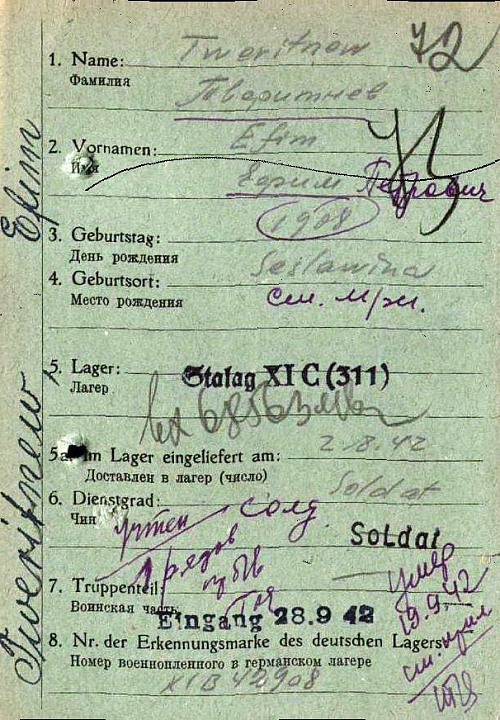 72
1. Name: Tweritnew
Фамилия Тваритнев
2. Vornamen: Efim
Имя Ефим Петрович
1908
3. Geburtstag:
День рождения
4. Geburtsort: Seslawina
Место рождения см. м/ж.
5. Lager: Stalag XI C (311)
Лагерь
5a. Im Lager eingeliefert am: 2.8.42
Доставлен в лагерь (число)
6. Dienstgrad: Soldat
Чин солд.
Soldat
7. Truppenteil:
Воинская часть
умер
19.9.42
Eingang 28.9 42
8. Nr. der Erkennungsmarke des deutschen Lagers:
Номер военнопленного в германском лагере
XI B 42908
Tweritnew, Efim